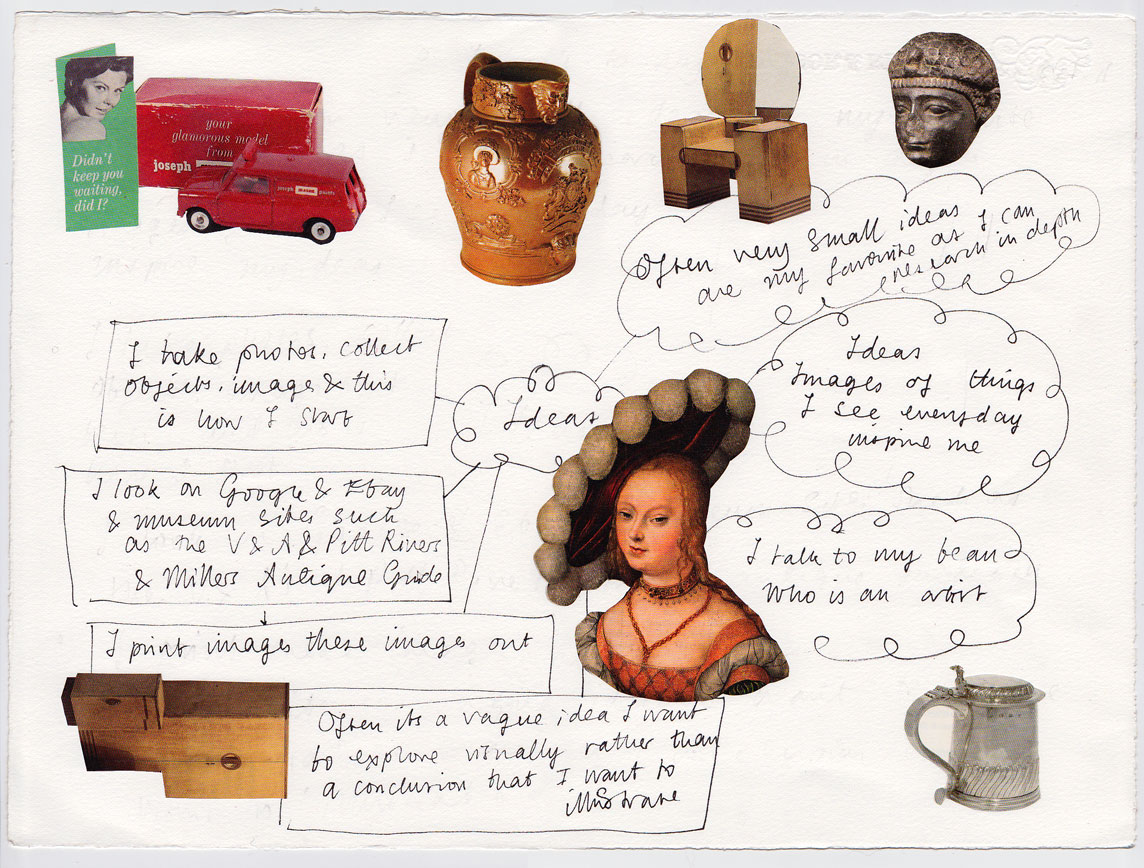 Didn't
keep you
waiting,
did I?
your
glamorous model
from
joseph
joseph paints
Often very small ideas
are my favourite as I can
research in depth
I take photos, collect
objects, image & this
is how I start
Ideas
Ideas
Images of things
I see everyday
inspire me
I look on Google & Ebay
& museum sites such
as the V & A & Pitt Rivers
& Millers Antique Guide
I talk to my beau
who is an artist
I print images these images out
Often its a vague idea I want
to explore visually rather than
a conclusion that I want to
illustrate